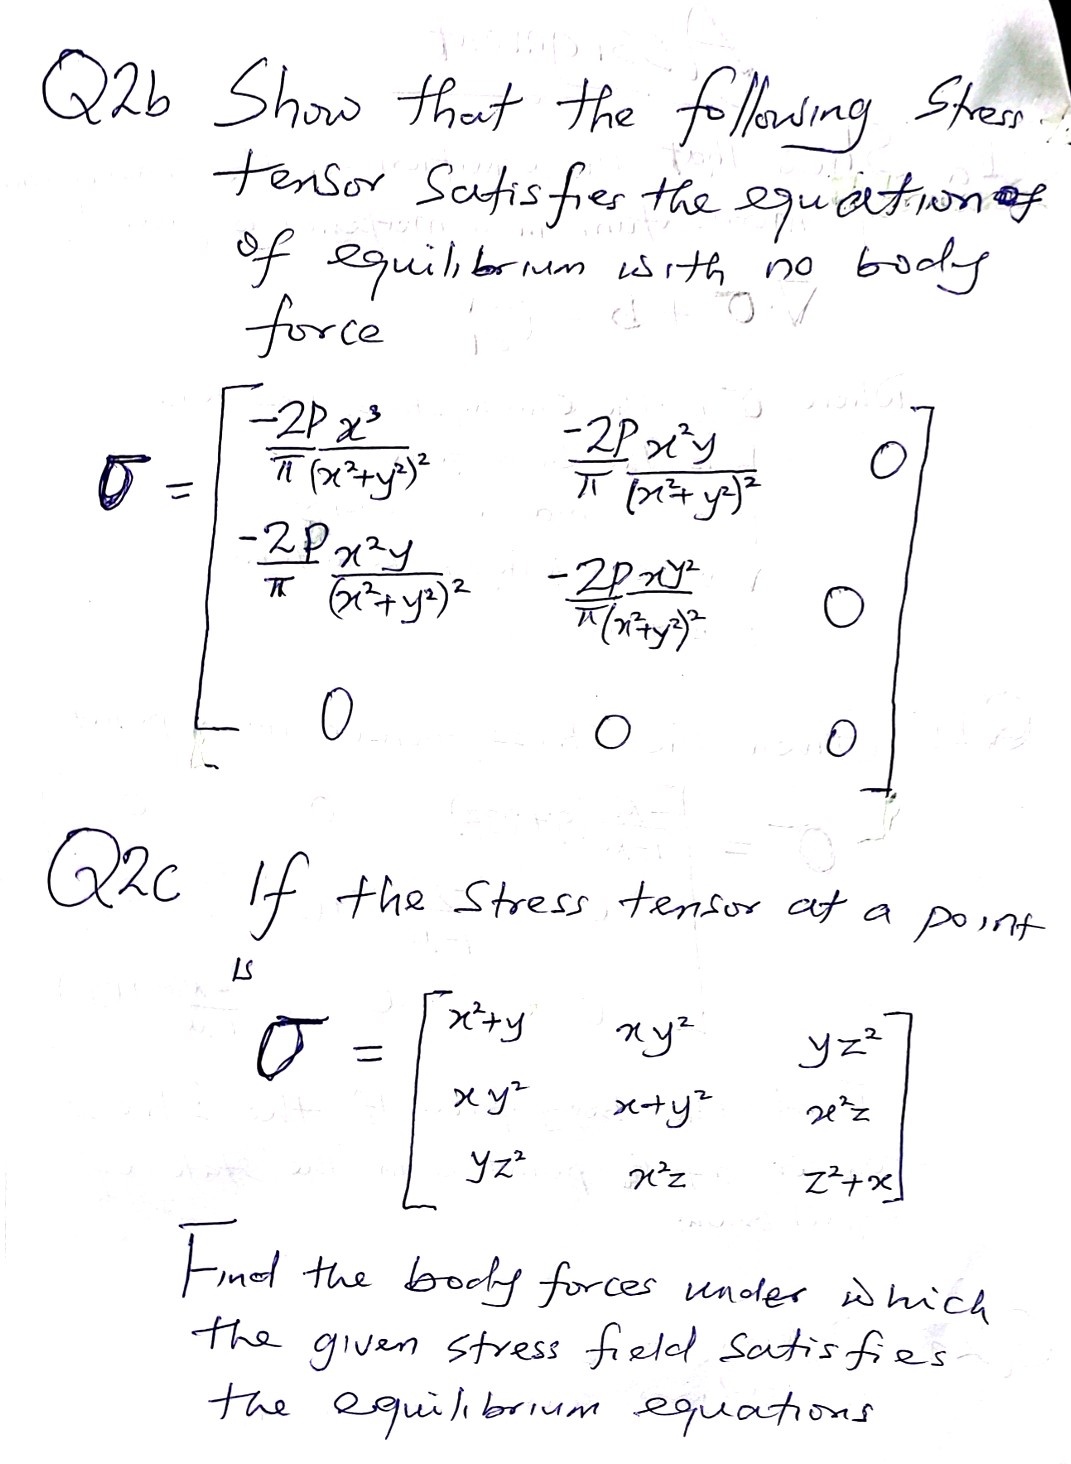 Q2b Show that the following Stress
tensor Satisfies the equation of
of equilibrium with no body
force
σ = [ -2P/π x³/(x²+y²)²   -2P/π x²y/(x²+y²)²   0
-2P/π x²y/(x²+y²)²   -2P/π xy²/(x²+y²)²   0
0   0   0 ]
Q2c If the stress tensor at a point
is
σ = [ x²+y   xy²   yz²
xy²   x+y²   x²z
yz²   x²z   z²+x ]
Find the body forces under which
the given stress field satisfies
the equilibrium equations